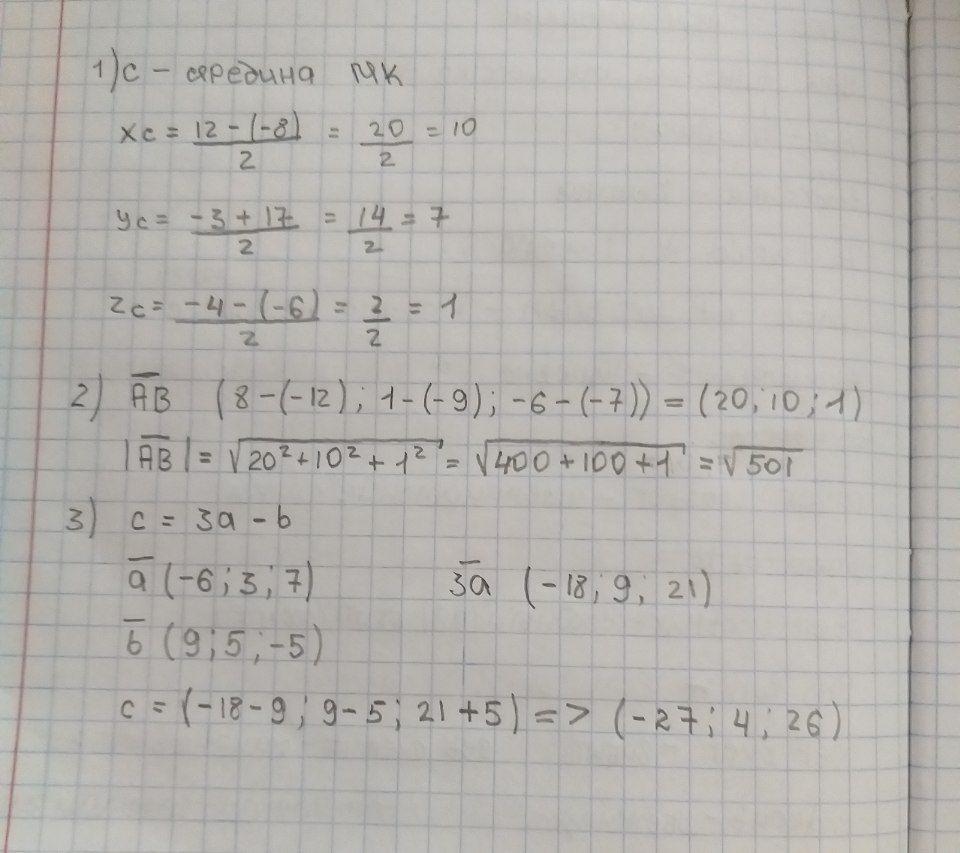 1) С – середина МК
xc = 12 – (–8) / 2 = 20 / 2 = 10
yc = –3 + 17 / 2 = 14 / 2 = 7
zc = –4 – (–6) / 2 = 2 / 2 = 1
2) A̅B̅ (8 – (–12); 1 – (–9); –6 – (–7)) = (20; 10; 1)
|A̅B̅| = √20² + 10² + 1² = √400 + 100 + 1 = √501
3) c = 3a – b
a̅ (–6; 3; 7) 3a̅ (–18; 9; 21)
b̅ (9; 5; –5)
c = (–18 – 9; 9 – 5; 21 + 5) => (–27; 4; 26)